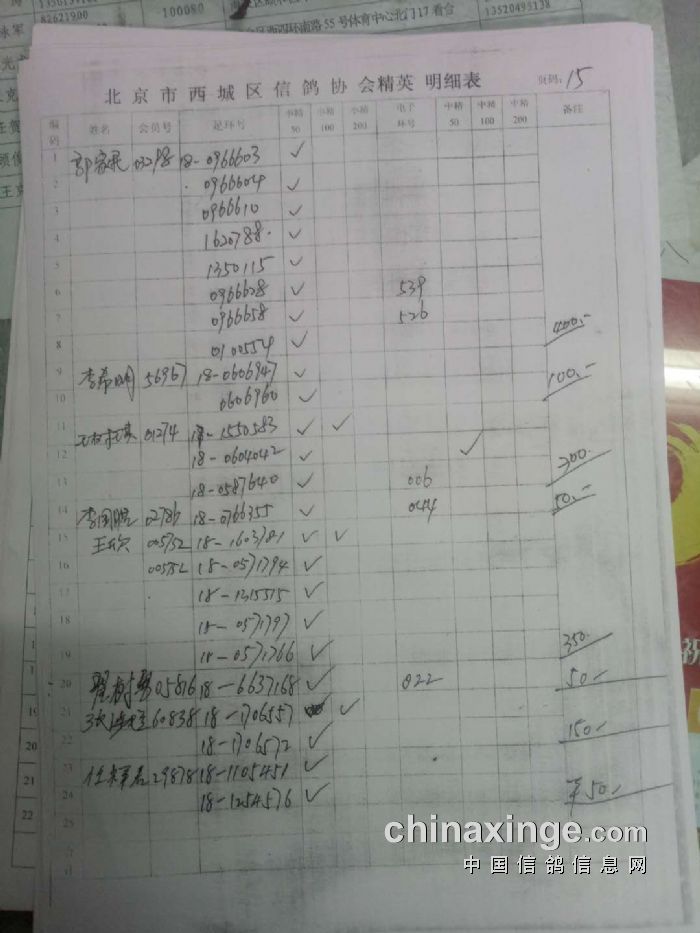 82621900
100080
路55号体育中心北门17看台
13520495138
北京市西城区信鸽协会精英 明细表 页码: 15
编码 姓名 会员号 足环号 小精50 小精100 小精200 电子环号 中精50 中精100 中精200 备注
1 18-0966603 ✓
2 0966604 ✓
3 0966610 ✓
4 1620788 ✓
5 1350115 ✓
6 0966628 ✓ 539
7 0966658 ✓ 526
8 0100554 ✓ 400.-
9 李希明 56967 18-0606947 ✓
10 0606960 ✓ 100.-
11 01274 18-1550583 ✓ ✓
12 18-0604042 ✓ ✓
13 18-0587640 ✓ 006 300.-
14 02786 18-0766355 ✓ 044 50.-
15 王欣 00552 18-1603781 ✓ ✓
16 00552 18-0571794 ✓
17 18-1315515 ✓
18 18-0571797 ✓
19 18-0571766 ✓ 350.-
20 05876 18-6637168 ✓ 022 50.-
21 60838 18-1706557 ✓
22 18-1706572 ✓ 150.-
23 29878 18-1105451 ✓
24 18-1254576 ✓ 50.-
25
chinaxinge.com
中国信鸽信息网